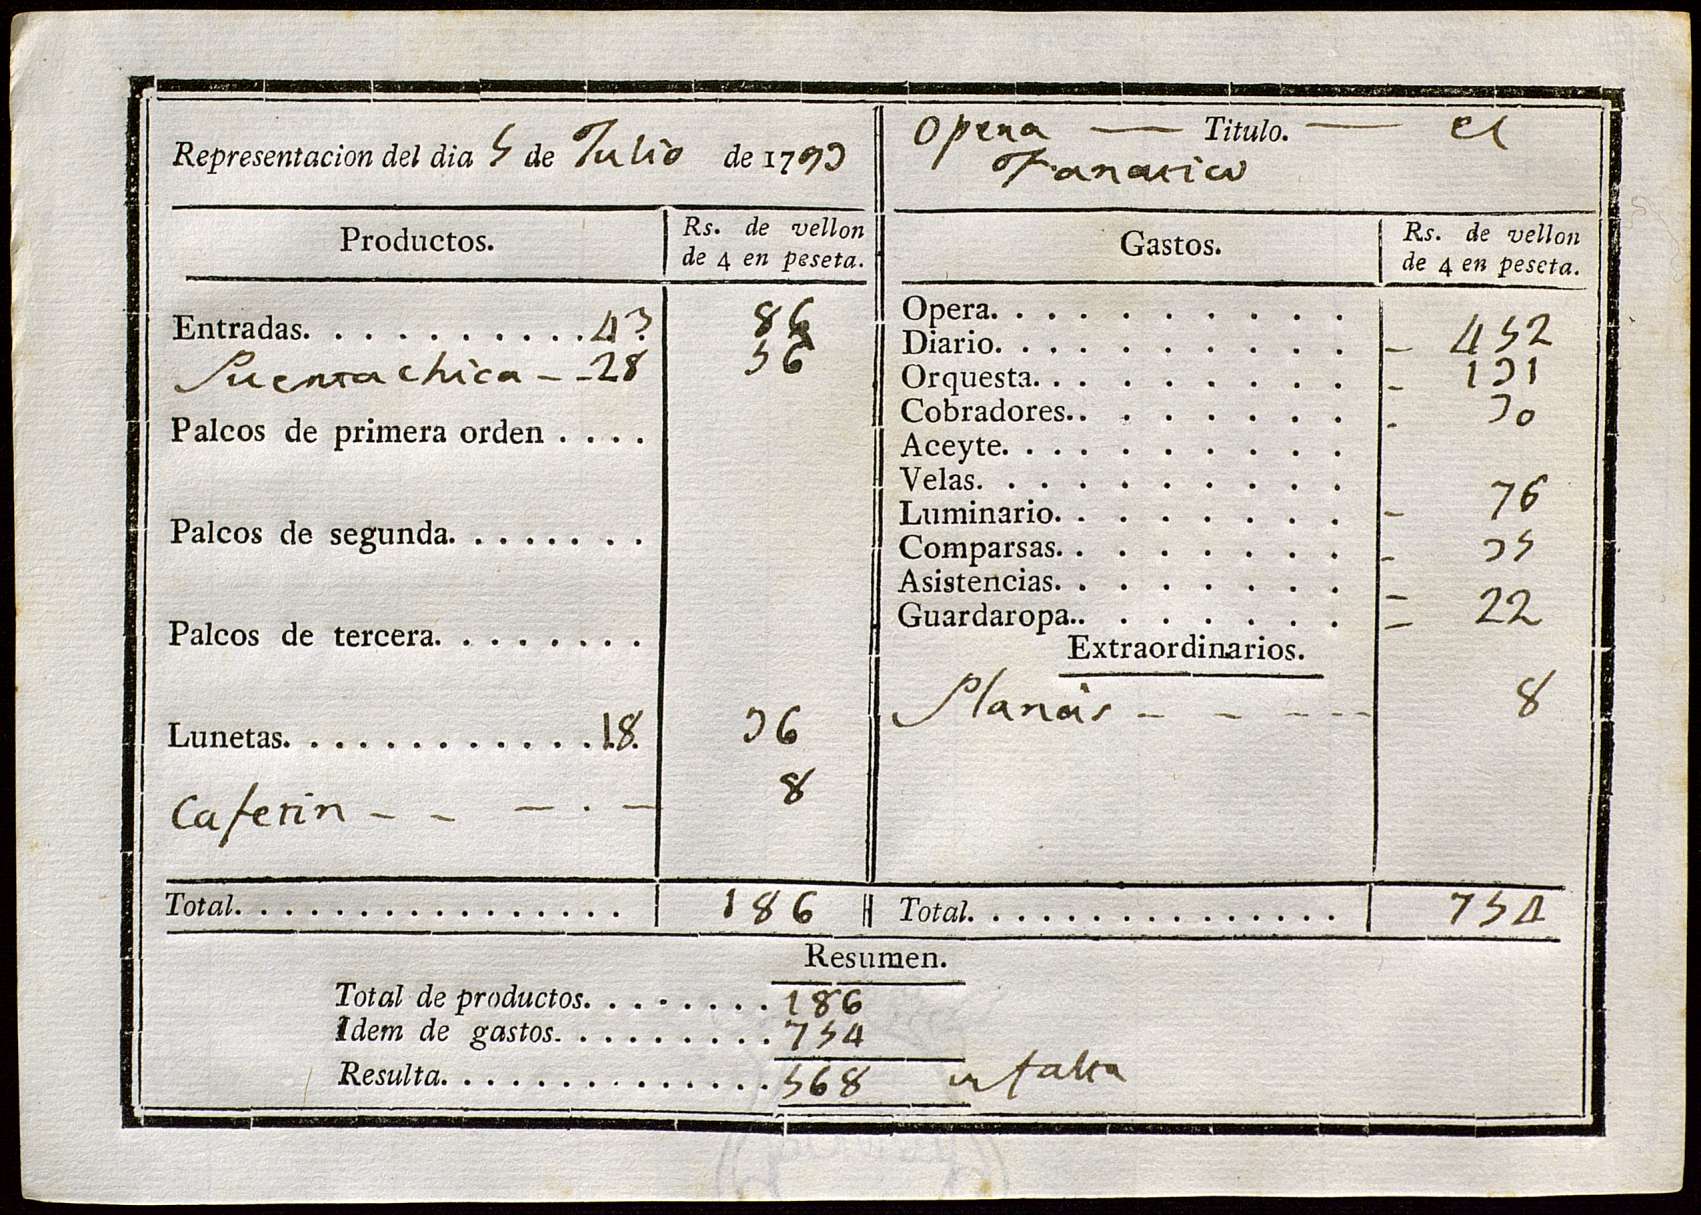 Representacion del dia 5 de Julio de 1793
Opera — Titulo. — el
Fanatico
Productos.
Rs. de vellon
de 4 en peseta.
Entradas. . . . . . . . . . 43 86
Puerta chica - - 28 56
Palcos de primera orden . . . .
Palcos de segunda. . . . . . . .
Palcos de tercera. . . . . . . .
Lunetas. . . . . . . . . . . . . 18. 36
Cafetin - - — . — 8
Total. . . . . . . . . . . . . . . . 186
Gastos.
Rs. de vellon
de 4 en peseta.
Opera. . . . . . . . . .
Diario. . . . . . . . . . - 452
Orquesta. . . . . . . . . - 131
Cobradores.. . . . . . . - 30
Aceyte. . . . . . . . . .
Velas. . . . . . . . . . .
Luminario. . . . . . . . - 76
Comparsas. . . . . . . . - 35
Asistencias. . . . . . . . -
Guardaropa.. . . . . . . - 22
Extraordinarios.
Planas - - - - - 8
Total. . . . . . . . . . . . . . . 754
Resumen.
Total de productos. . . . . . . . 186
Idem de gastos. . . . . . . . . 754
Resulta. . . . . . . . . . . . . . 568 en falta